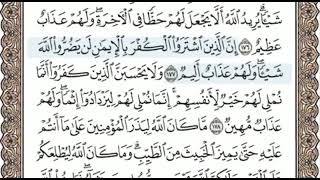 شَيْـًٔا يُرِيدُ ٱللَّهُ أَلَّا يَجْعَلَ لَهُمْ حَظًّا فِى ٱلْـَٔاخِرَةِ وَلَهُمْ عَذَابٌ
عَظِيمٌ ١٧٦ إِنَّ ٱلَّذِينَ ٱشْتَرَوُا۟ ٱلْكُفْرَ بِٱلْإِيمَـٰنِ لَن يَضُرُّوا۟ ٱللَّهَ
شَيْـًٔا وَلَهُمْ عَذَابٌ أَلِيمٌ ١٧٧ وَلَا يَحْسَبَنَّ ٱلَّذِينَ كَفَرُوٓا۟ أَنَّمَا
نُمْلِى لَهُمْ خَيْرٌ لِّأَنفُسِهِمْ إِنَّمَا نُمْلِى لَهُمْ لِيَزْدَادُوٓا۟ إِثْمًا وَلَهُمْ
عَذَابٌ مُّهِينٌ ١٧٨ مَّا كَانَ ٱللَّهُ لِيَذَرَ ٱلْمُؤْمِنِينَ عَلَىٰ مَآ أَنتُمْ
عَلَيْهِ حَتَّىٰ يَمِيزَ ٱلْخَبِيثَ مِنَ ٱلطَّيِّبِ وَمَا كَانَ ٱللَّهُ لِيُطْلِعَكُمْ